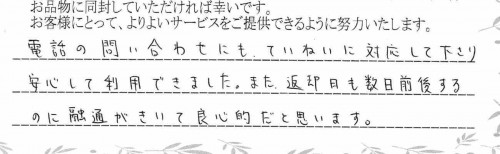 お品物に同封していただければ幸いです。
お客様にとって、よりよいサービスをご提供できるように努力いたします。
電話の問い合わせにも、ていねいに対応して下さり
安心して利用できました。また、返却日も数日前後する
のに融通がきいて良心的だと思います。